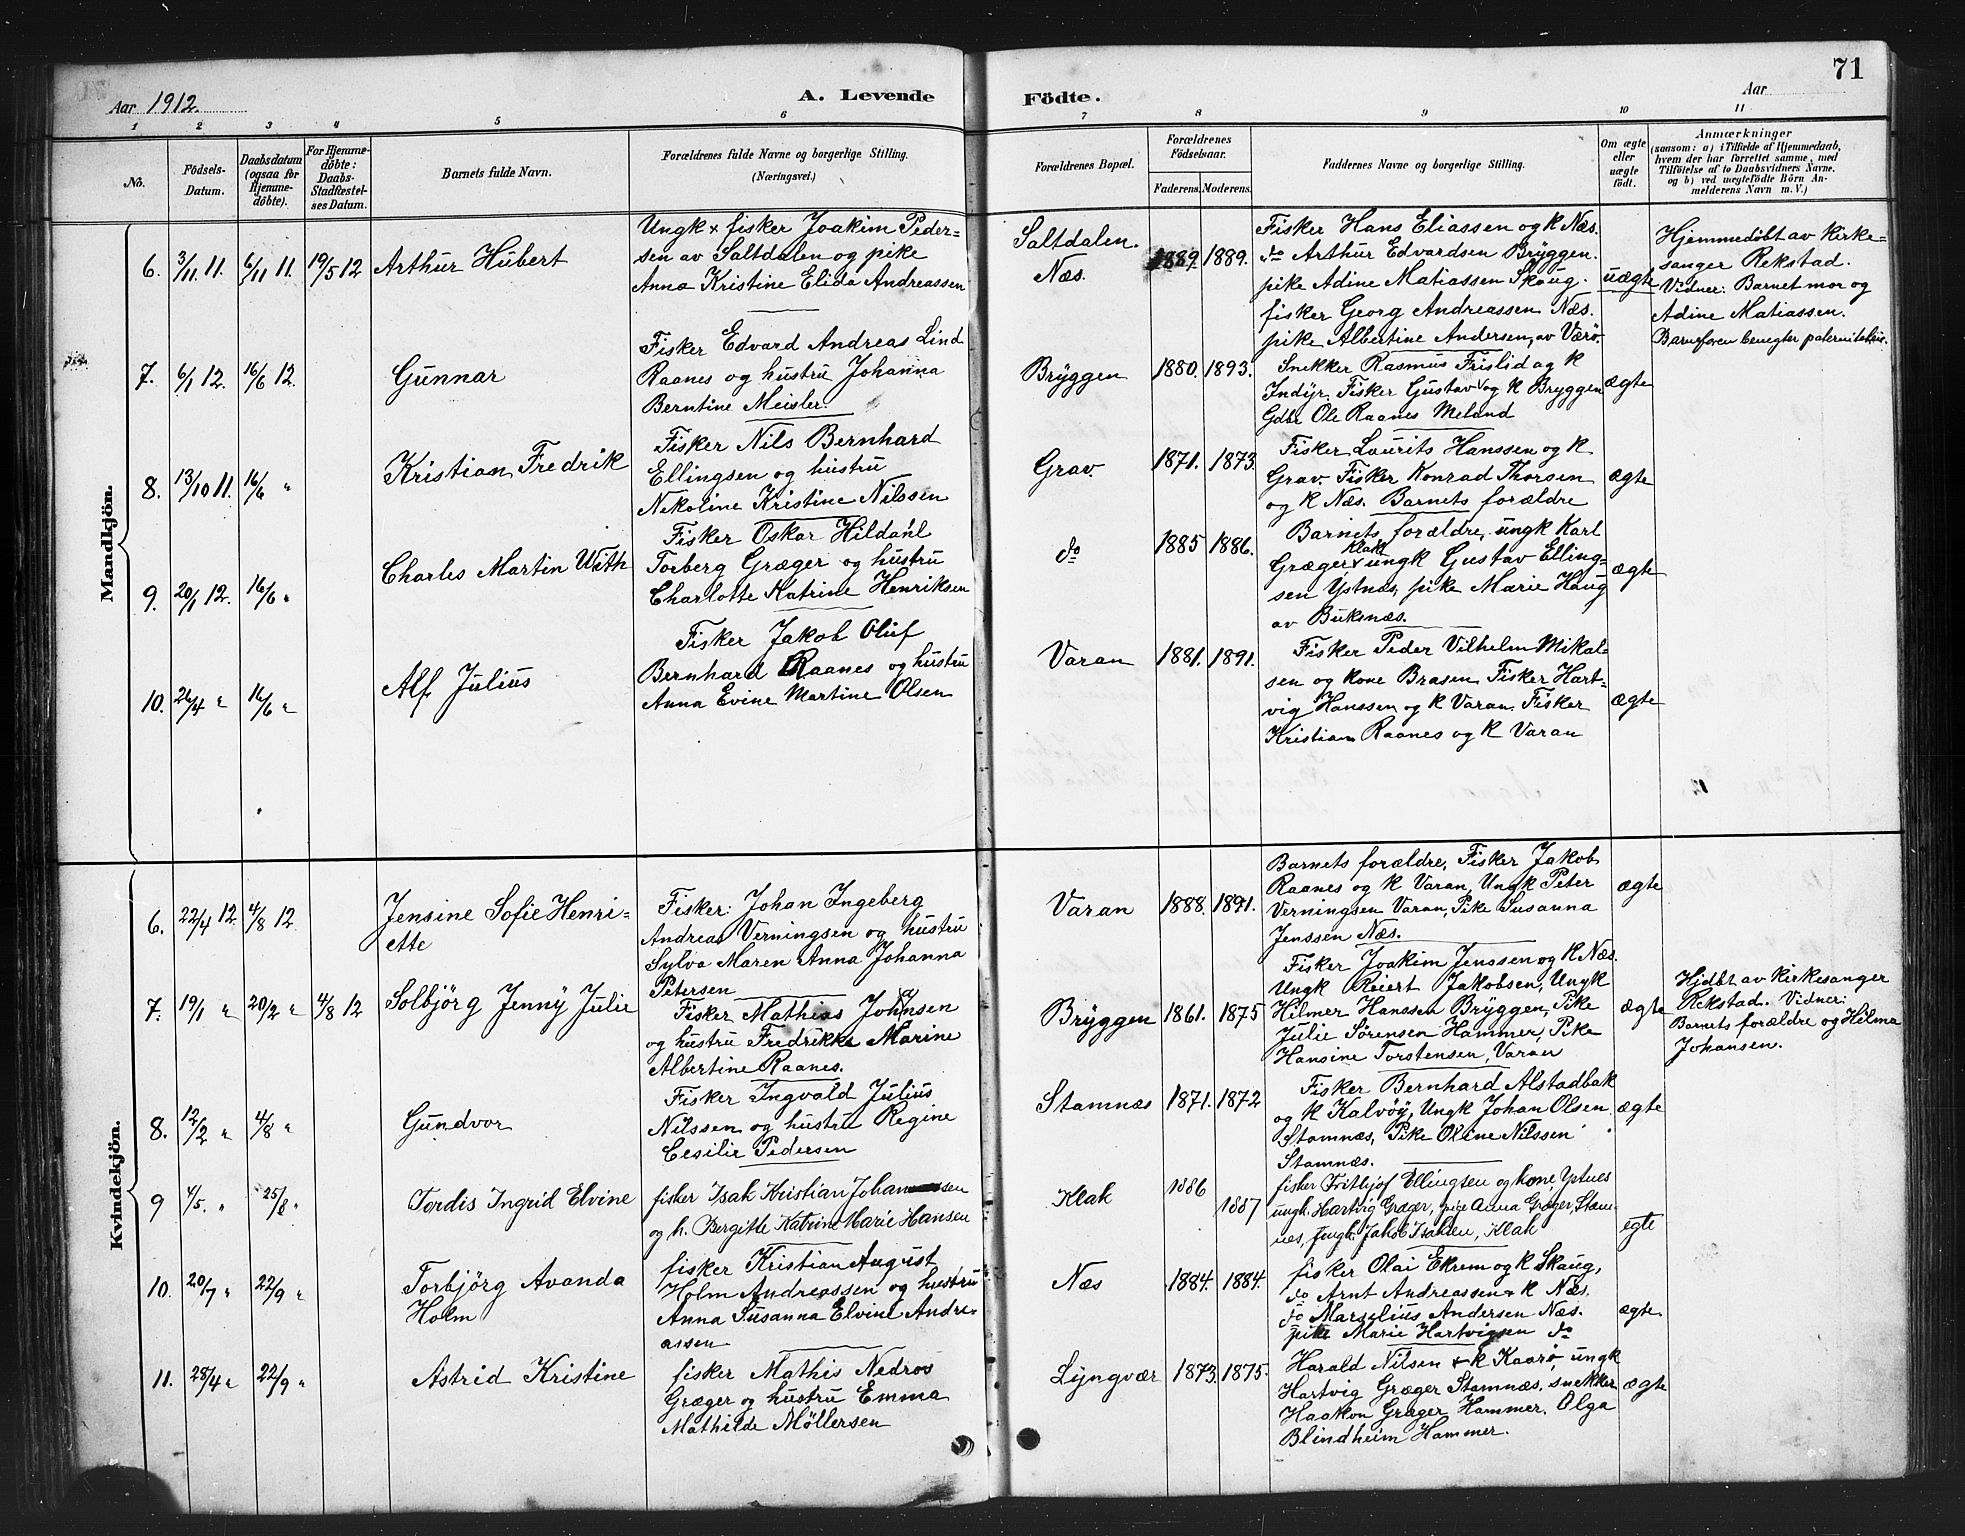 Aar 1912.
A. Levende
Födte.
Aar
71
1
2
3
4
5
6
7
8
9
10
11
No.
Födsels-
Datum.
Daabsdatum
(ogsaa for
Hjemme-
döbte).
For Hjemme-
döbte:
Daabs-
Stadfæstel-
ses Datum.
Barnets fulde Navn.
Forældrenes fulde Navne og borgerlige Stilling.
(Næringsvei.)
Forældrenes Bopæl.
Forældrenes
Födselsaar.
Faderens.
Moderens.
Faddernes Navne og borgerlige Stilling.
Om ægte
eller
uægte
födt.
Anmærkninger
(saasom: a) i Tilfælde af Hjemmedaab,
hvem der har forrettet samme, med
Tilföielse af to Daabsvidners Navne,
og b) ved uægtefödte Börn An-
melderens Navn m. V.)
Mandkjön.
6. 3/11 11. 6/11 11. 19/5 12 Arthur Hubert
Ungk + fisker Joakim Peder-
sen av Saltdalen og pike
Anna Kristine Elida Andreassen
Saltdalen.
Næs.
1889. 1889.
Fisker Hans Eliassen og k Næs.
do Arthur Edvardsen Bryggen.
pike Adine Matiassen Skaug.
fisker Georg Andreassen Næs.
pike Albertine Andersen, av Værö.
uægte
Hjemmedöbt av Kirke-
sanger Rekstad.
Vidner: Barnet mor og
Adine Matiassen.
Barnefaren benegter paterniteten.
7. 6/1 12. 16/6 12. Gunnar
Fisker Edvard Andreas Lind
Raanes og hustru Johanna
Berntine Meisler.
Bryggen
1880. 1893.
Snekker Rasmus Frislid og k
Indyr, Fisker Gustav og k Bryggen
Gdbr Ole Raanes Meland
ægte
8. 13/10 11. 16/6 " Kristian Fredrik
Fisker Nils Bernhard
Ellingsen og hustru
Nekoline Kristine Nilssen
Grav.
1871. 1873.
Fisker Laurits Hanssen og k
Grav. Fisker Konrad Thorsen
og k Næs. Barnets forældre
ægte
9. 20/1 12. 16/6 " Charles Martin With
Fisker Oskar Hildahl
Torberg Græger og hustru
Charlotte Katrine Henriksen
do
1885 1886.
Barnets forældre, ungk Karl
Græger Klak + ungk Gustav Elling-
sen Ystnæs, pike Marie Haug
av Buksnæs.
ægte
10. 26/4 " 16/6 " Alf Julius
Fisker Jakob Oluf
Bernhard Raanes og hustru
Anna Evine Martine Olsen
Varan
1881. 1891.
Fisker Peder Vilhelm Mikal-
sen og kone Brasen, Fisker Hart-
vig Hanssen og k Varan. Fisker
Kristian Raanes og k Varan
ægte
Kvindekjön.
6. 22/4 12. 4/8 12. Jensine Sofie Henri-
ette
Fisker: Johan Ingeberg
Andreas Verningsen og hustru
Sylva Maren Anna Johanna
Petersen
Varan
1888. 1891.
Barnets forældre, Fisker Jakob
Raanes og k Varan, Ungk Peter
Verningsen Varan, Pike Susanna
Jenssen Næs.
ægte
7. 19/1 " 20/2 " 4/8 12 Solbjörg Jenny Julie
Fisker Mathias Johansen
og hustru Fredrikke Marine
Albertine Raanes.
Bryggen
1861. 1875
Fisker Joakim Jenssen og k Næs.
Ungk Reiert Jakobsen, Ungk
Hilmer Hanssen Bryggen, Pike
Julie Sørensen Hammer, Pike
Hansine Torstensen, Varan
ægte
Hjdöbt av Kirkesanger
Rekstad. Vidner:
Barnets forældre og Hilma
Johansen.
8. 12/2 " 4/8 " Gundvor
Fisker Ingvald Julius
Nilssen og hustru Regine
Cesilie Pedersen
Stamnæs
1871. 1872
Fisker Bernhard Alstadbak
og k Kalvöy, Ungk Johan Olsen
Stamnæs, Pike Oline Nilssen
Stamnæs.
ægte
9 4/5. " 25/8 " Tordis Ingrid Elvine
fisker Isak Kristian Johansen
og h. Bergitte Katrine Marie Hansen
Klak
1886
1887
fisker Frithjof Ellingsen og kone, Ystnes
ungk. Hartvig Græger, pige Anna Græger, Stam-
nes, Ungk. Jakob Isaksen, Klak
egte
10. 20/7 " 22/9 " Torbjörg Avanda
Holm
fisker Kristian August
Holm Andreassen og hustru
Anna Susanna Elvine Andre-
assen
Næs
1884. 1884.
fisker Olai Ekrem og k Skaug,
do Arnt Andreassen + k Næs.
do Marselius Andersen Næs.
pike Marie Hartvigsen do
ægte.
11. 28/4 " 22/9 " Astrid Kristine
fisker Mathis Nedros
Græger og hustru Emma
Mathilde Möllersen
Lyngvær
1873. 1875.
Harald Nilsen + k Kaarö, ungk
Hartvig Græger Stamnæs, snekker
Haakon Græger Hammer. Olga
Blindheim Hammer.
ægte